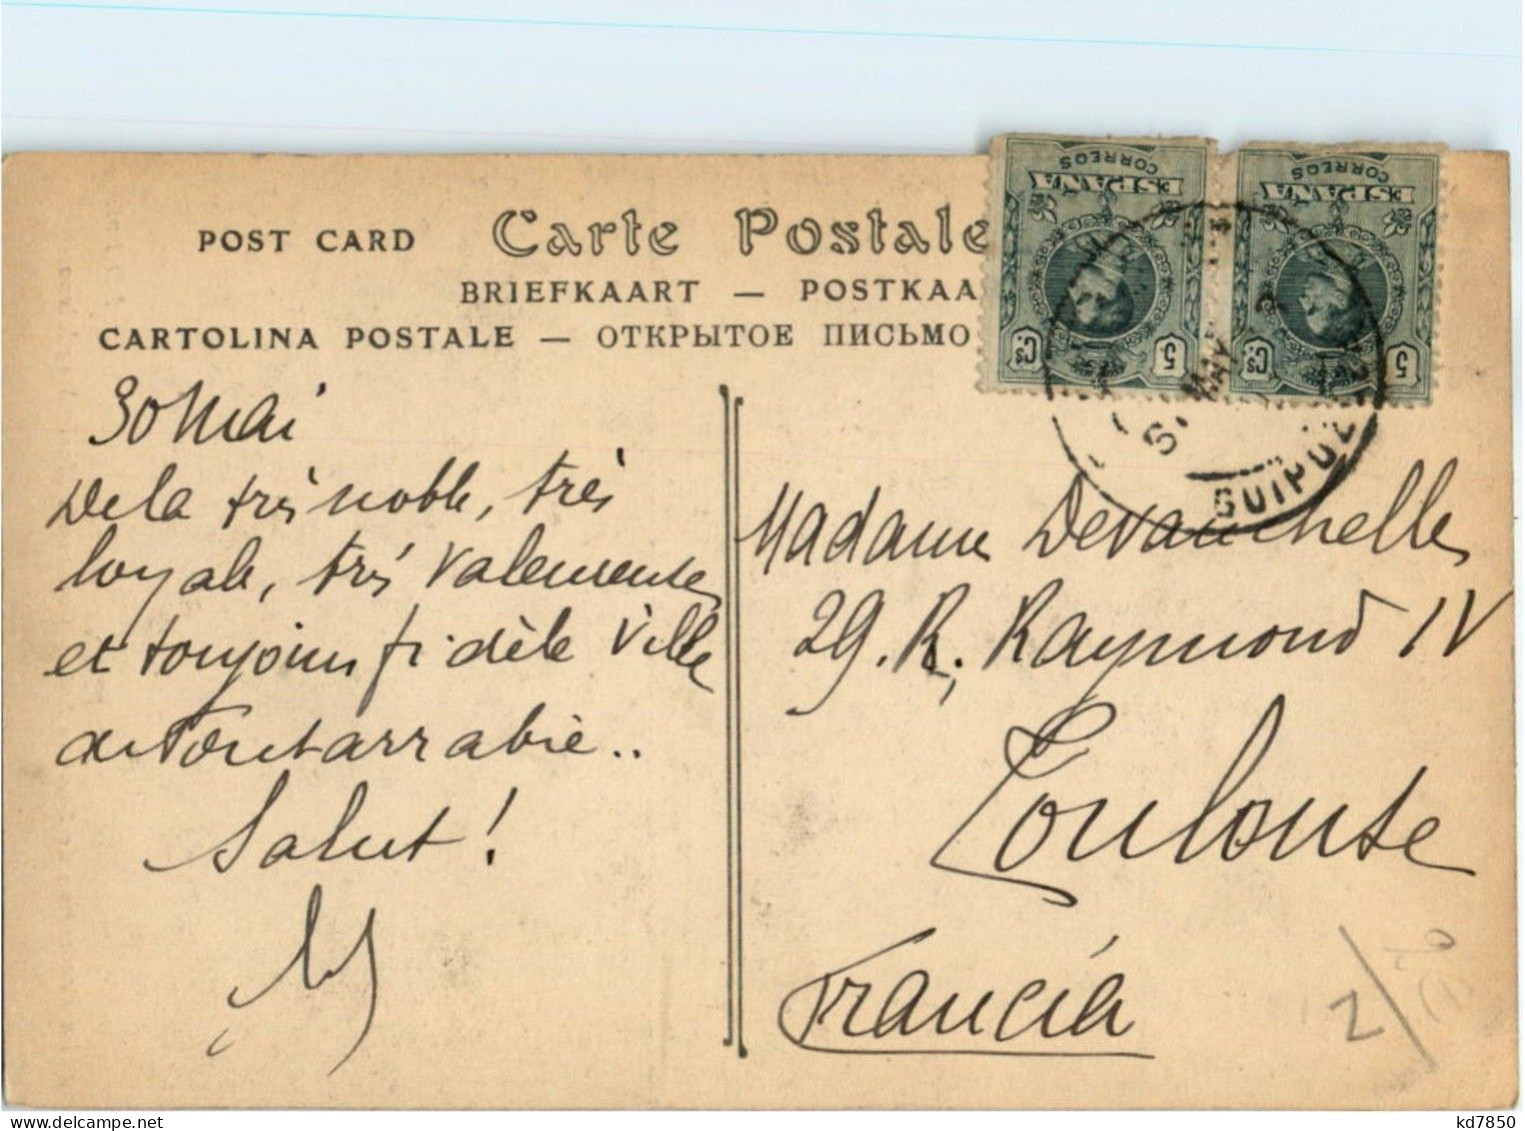 CORREOS
ESPAÑA
5 Cs
CORREOS
ESPAÑA
5 Cs
POST CARD Carte Postale
BRIEFKAART — POSTKAA
CARTOLINA POSTALE — ОТКРЫТОЕ ПИСЬМО
GUIPUZ
30 Mai
De la très noble, très
loyale, très valeureuse
et toujours fidèle Ville
de Fontarrabie..
Salut!
Madame Devauchelle
29. R. Raymond IV
Toulouse
Francia
Z
kd7850